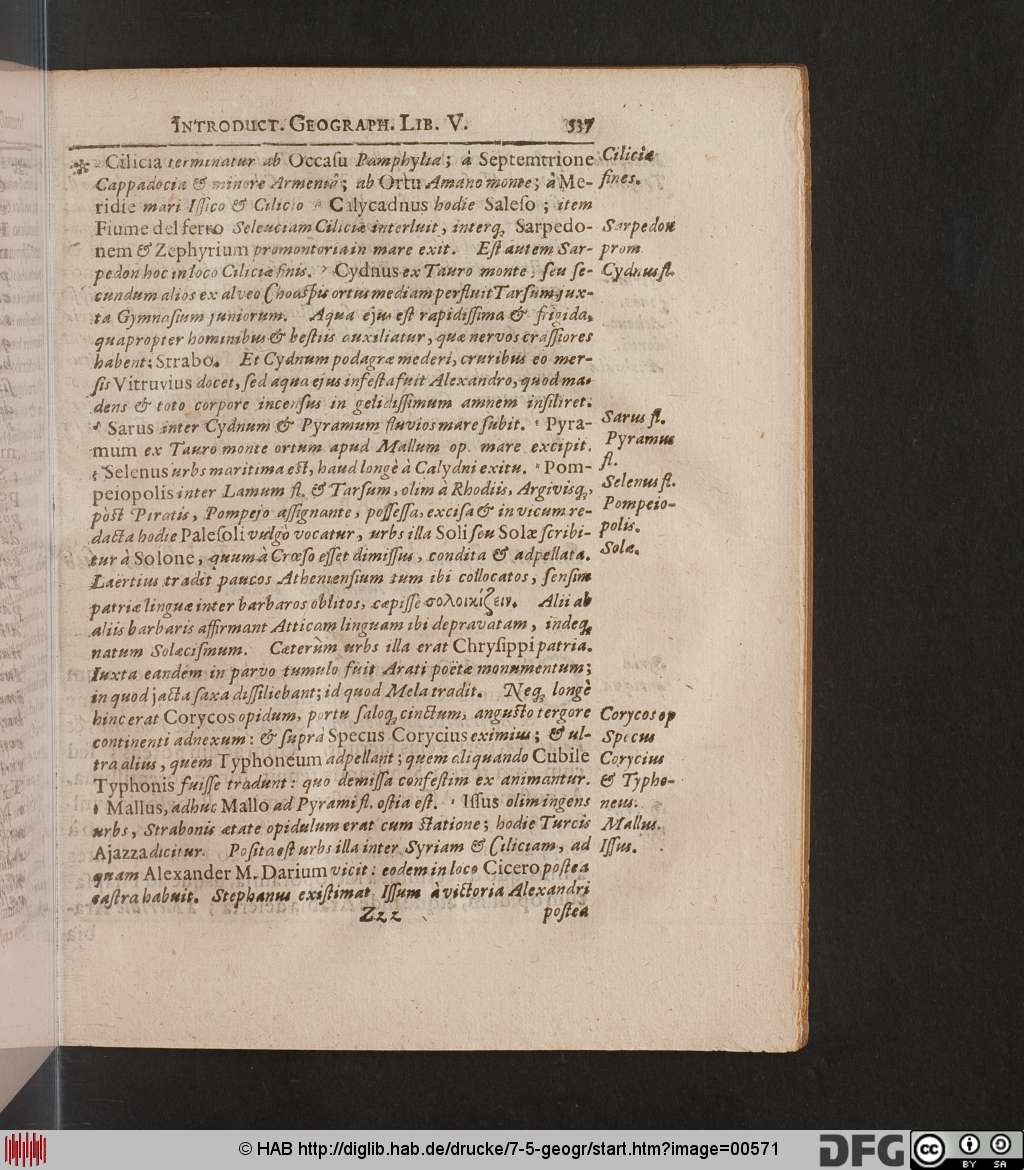 INTRODUCT. GEOGRAPH. LIB. V. 537
Cilicia terminatur ab Occasu Pamphylia; à Septemtrione
Cappadocia & minore Armeniâ; ab Ortu Amano monte; à Me-
ridie mari Issico & Cilicio Calycadnus hodie Saleso; item
Fiume del ferro Seleuciam Ciliciæ interluit, interq; Sarpedo-
nem & Zephyrium promontoria in mare exit. Est autem Sar-
pedon hoc in loco Ciliciæ finis. Cydnus ex Tauro monte, seu se-
cundum alios ex alveo Choaspis ortus mediam perfluit Tarsum jux-
ta Gymnasium juniorum. Aqua ejus est rapidissima & frigida,
quapropter hominibus & bestiis auxiliatur, quæ nervos crassiores
habent; Strabo. Et Cydnum podagræ mederi, cruribus eo mer-
sis Vitruvius docet, sed aqua ejus infesta fuit Alexandro, quod ma-
dens & toto corpore incensus in gelidissimum amnem insiliret.
Sarus inter Cydnum & Pyramum fluvios mare subit. Pyra-
mum ex Tauro monte ortum apud Mallum op. mare excipit.
Selenus urbs maritima est, haud longè à Calydni exitu. Pom-
peiopolis inter Lamum fl. & Tarsum, olim à Rhodiis, Argivisq;,
pòst Piratis, Pompejo assignante, possessa, excisa & in vicum re-
dacta hodie Palesoli vulgò vocatur, urbs illa Soli seu Solæ scribi-
tur à Solone, quum à Crœso esset dimissus, condita & adpellata.
Laërtius tradit paucos Atheniensium tum ibi collocatos, sensim
patriæ linguæ inter barbaros oblitos, cæpisse σολοικίζειν. Alii ab
aliis barbaris affirmant Atticam linguam ibi depravatam, indeq;
natum Solæcismum. Cæterùm urbs illa erat Chrysippi patria.
Iuxta eandem in parvo tumulo fuit Arati poëtæ monumentum;
in quod jacta saxa dissiliebant; id quod Mela tradit. Neq; longè
hinc erat Corycos opidum, portu saloq; cinctum, angusto tergore
continenti adnexum: & suprà Specus Corycius eximius; & ul-
tra alius, quem Typhoneum adpellant; quem aliquando Cubile
Typhonis fuisse tradunt: quo demissa confestim ex animantur.
Mallus, adhuc Mallo ad Pyrami fl. ostia est. Issus olim ingens
urbs, Strabonis ætate opidulum erat cum statione; hodie Turcis
Ajazza dicitur. Posita est urbs illa inter Syriam & Ciliciam, ad
quam Alexander M. Darium vicit: eodem in loco Cicero postea
castra habuit. Stephanus existimat Issum à victoria Alexandri
Zzz postea
Ciliciæ
fines.
Sarpedon
prom
Cydnus fl.
Sarus fl.
Pyramus
fl.
Selenus fl.
Pompeio-
polis.
Solæ.
Corycos op
Specus
Corycius
& Typho-
neus.
Mallus.
Issus.
© HAB http://diglib.hab.de/drucke/7-5-geogr/start.htm?image=00571
DFG
cc BY SA